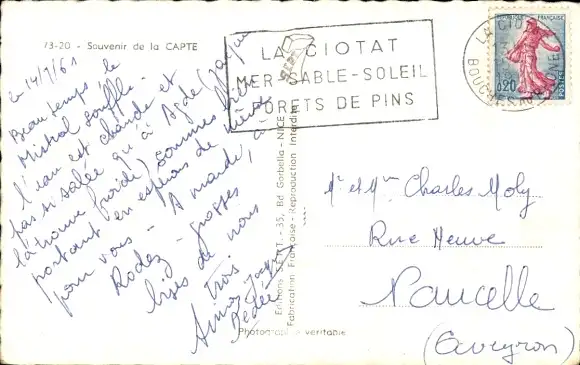 13-20 - Souvenir de la CAPTE
le 14/7/61
Beau temps, le
Mistral souffle.
l'eau est chaude et
pas si salée qu'à Agde (Jacques
la trouve froide) sommes
portant en espérons de même
pour vous - A mardi, à
Rodez - grosses
bises de nous
Trois
Jacques
LA CIOTAT
MER-SABLE-SOLEIL
FORETS DE PINS
LA CIO
BOUCHES DU RHONE
REPUBLIQUE FRANÇAISE
0,20
POSTES
35, Bd Gorbella - NICE
Fabrication Française - Reproduction Interdite
Photographie véritable
Mr et Mme Charles Moly
Rue Neuve
Naucelle
(Aveyron)